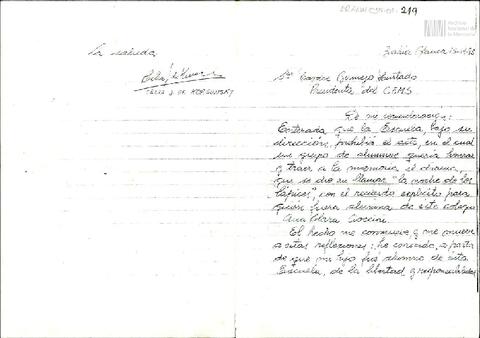 219
Archivo
Nacional de
la Memoria
La saluda
Celia J. de Korsunsky
CELIA J. DE KORSUNSKY
Bahía Blanca
Sra Haydée Bermejo Hurtado
Presidenta del CEMS
De mi consideración:
Enterada que la Escuela, bajo su
dirección, prohibió el acto, en el cual
un grupo de alumnos quería honrar
y traer a la memoria el drama,
que se dió en llamar "la noche de los
lápices", con el recuerdo explícito para
quién fuera alumna de este colegio
Ana Clara
El hecho me conmueve y me mueve
a estas reflexiones: he conocido, a partir
de que mi hijo fué alumno de esta
Escuela, de la libertad y responsabilidad